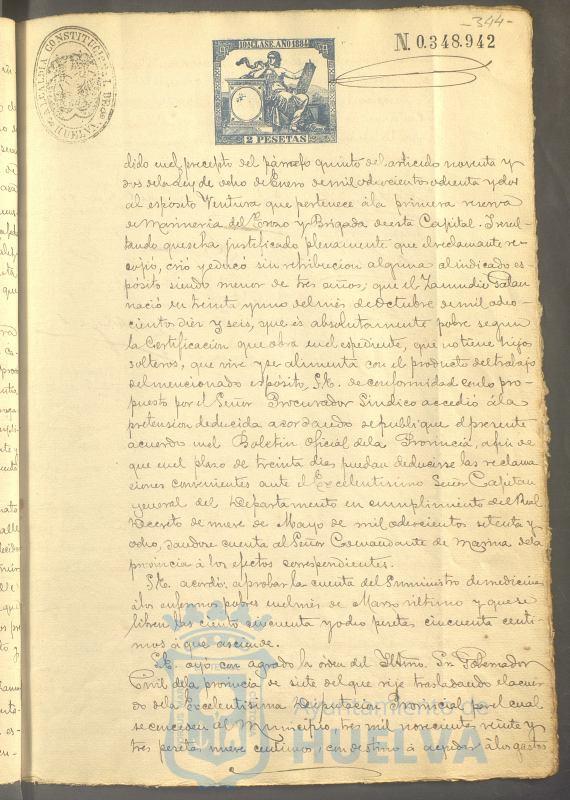 -344-
ALCALDIA CONSTITUCIONAL DE HUELVA
10ª CLASE. AÑO 1884
2 PESETAS
N. 0.348.942
dido en el precepto del párrafo quinto del articulo noventa y
dos de la ley de ocho de Enero de mil ochocientos ochenta y dos
al espósito Ventura que pertenece á la primera reserva
de Marineria del Trozo y Brigada de esta Capital. Resul-
tando que se ha justificado plenamente que el reclamante re-
cojió, crió y educó sin retribucion alguna al indicado es-
pósito siendo menor de tres años, que el Zamudio
nació en treinta y uno del més de Octubre de mil ocho-
cientos diez y seis, que es absolutamente pobre segun
la Certificacion que obra en el espediente, que no tiene hijos
solteros, que vive y se alimenta con el producto del trabajo
del mencionado espósito, S.E. de conformidad con lo pro-
puesto por el Señor Procurador Sindico accedió á la
pretension deducida acordando se publique el presente
acuerdo en el Boletin Oficial de la Provincia, a fin de
que en el plazo de treinta dias puedan deducirse las reclama-
ciones convenientes ante el Excelentisimo Señor Capitan
general del Departamento en cumplimiento del Real
Decreto de nueve de Mayo de mil ochocientos setenta y
ocho, dandose cuenta al Señor Comandante de Marina de la
provincia á los efectos correspondientes.
S.E. acordó aprobar la cuenta del Suministro de medicinas
á los enfermos pobres en el més de Marzo último y que se
libren las ciento cincuenta y ocho pesetas cincuenta centi-
mos á que asciende.
S.E. oyó con agrado la órden del Iltmo. Sr. Gobernador
Civil de la provincia de siete del que rije trasladando el acuer-
do de la Excelentisima Diputacion Provincial por el cual
se conceden al Municipio, tres mil novecientas veinte y
tres pesetas nueve centimos, con destino á ayudar á los gastos
Ayuntamiento de
HUELVA